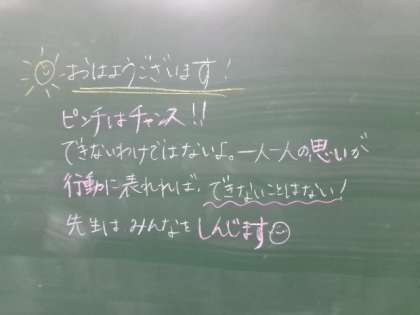 おはようございます！
ピンチはチャンス!!
できないわけではないよ。一人一人の思いが
行動に表れれば、できないことはない！
先生は みんなを しんじます